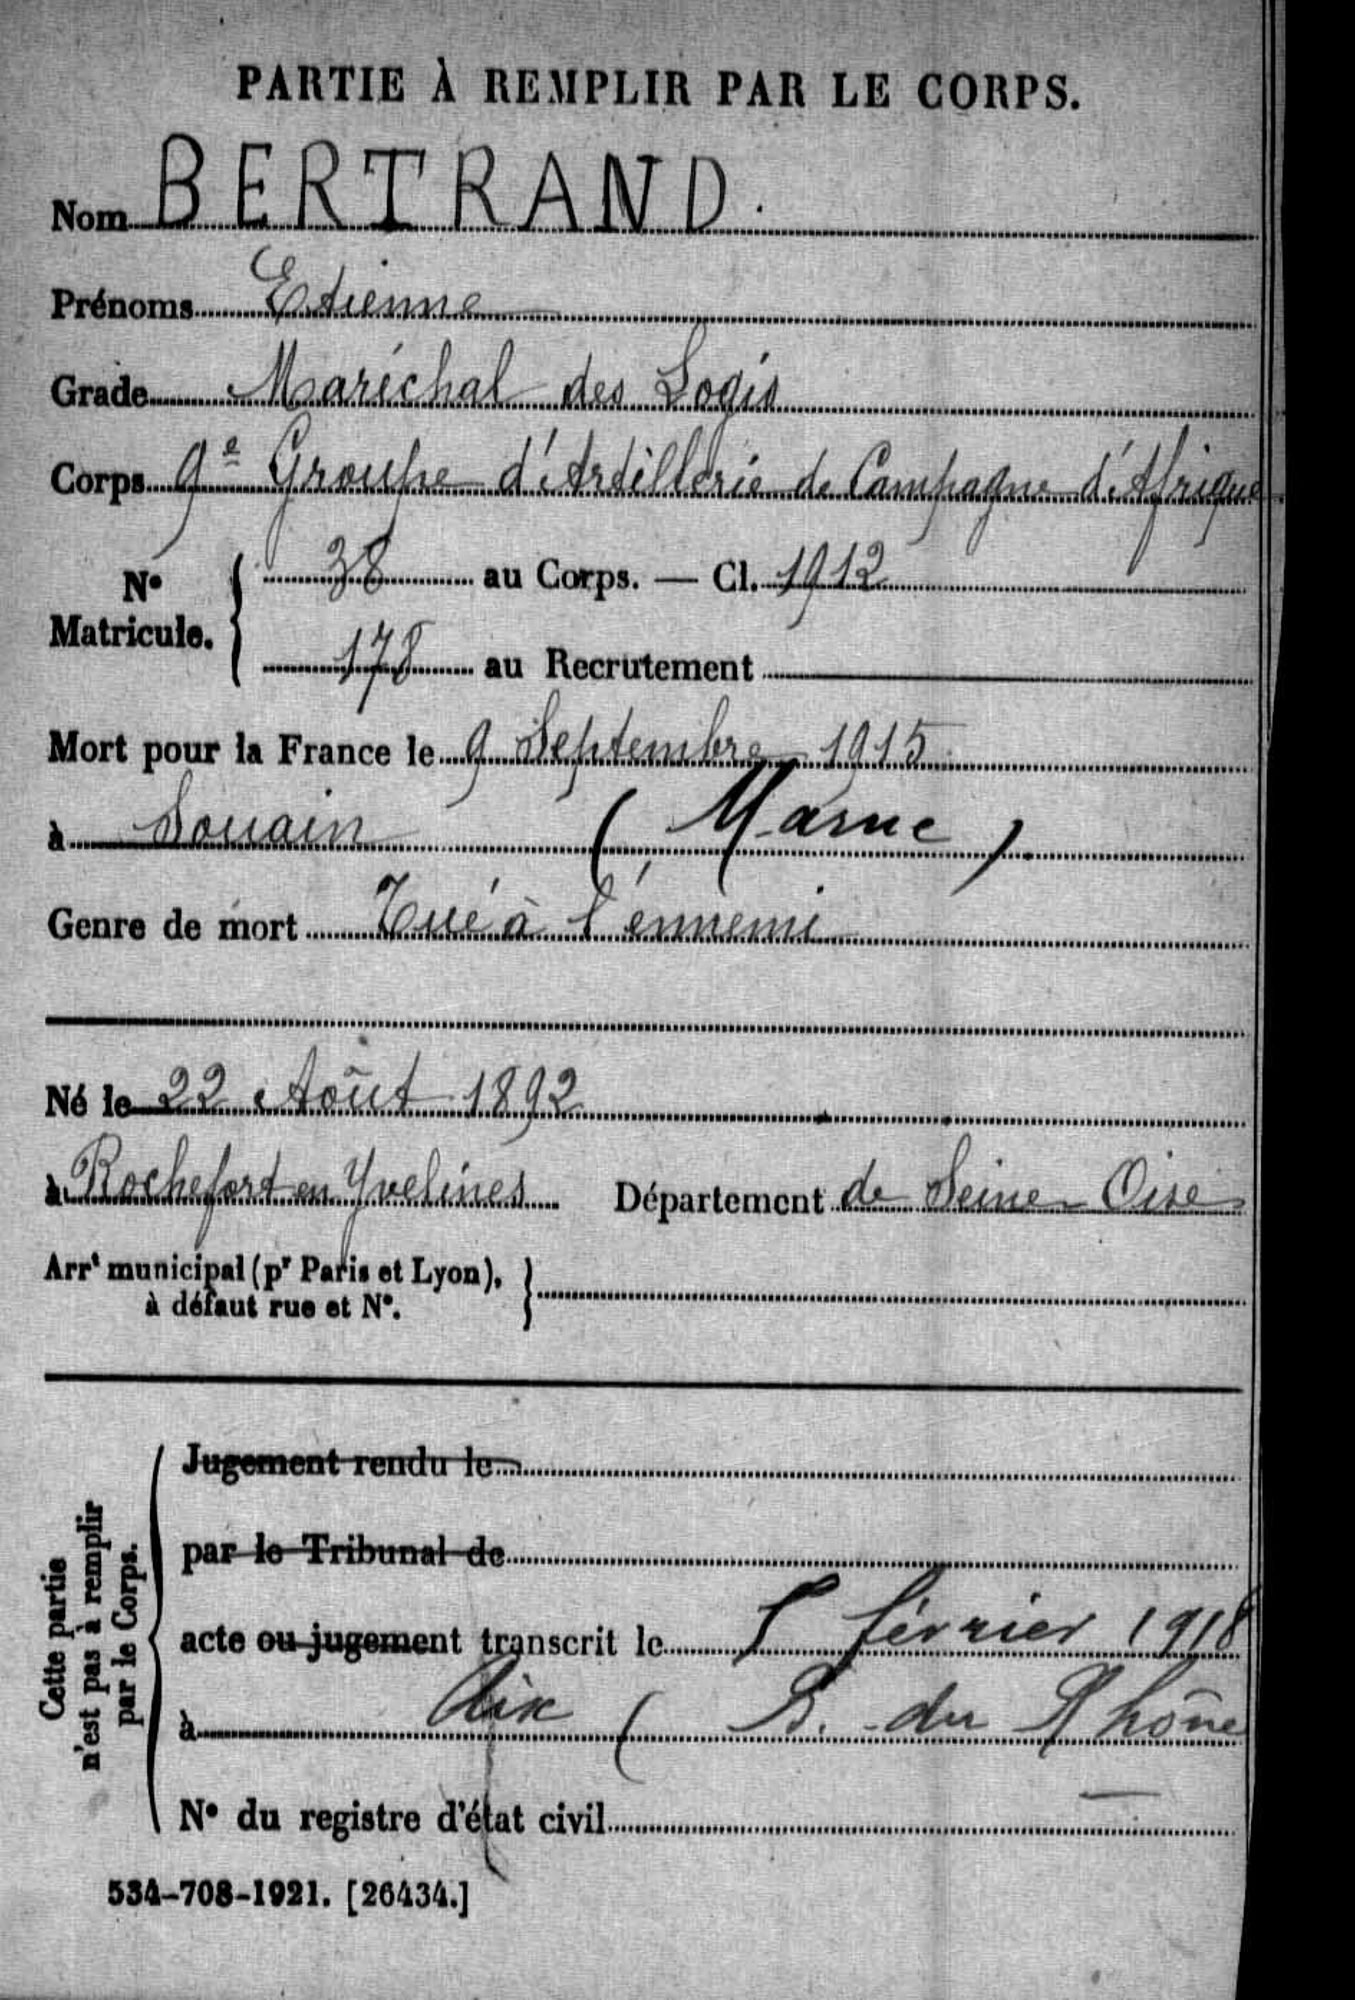 PARTIE À REMPLIR PAR LE CORPS.
Nom BERTRAND.
Prénoms Etienne
Grade Maréchal des Logis
Corps 9e Groupe d'Artillerie de Campagne d'Afrique
No Matricule. { 38 au Corps. — Cl. 1912
178 au Recrutement
Mort pour la France le 9 Septembre 1915
à Souain (Marne)
Genre de mort Tué à l'énnemi
Né le 22 Août 1892
à Rochefort en Yvelines Département de Seine-Oise
Arrt municipal (pr Paris et Lyon), à défaut rue et No. }
Cette partie n'est pas à remplir par le Corps.
Jugement rendu le
par le Tribunal de
acte ou jugement transcrit le 5 février 1918
à Aix (B. du Rhône
No du registre d'état civil
534-708-1921. [26434.]